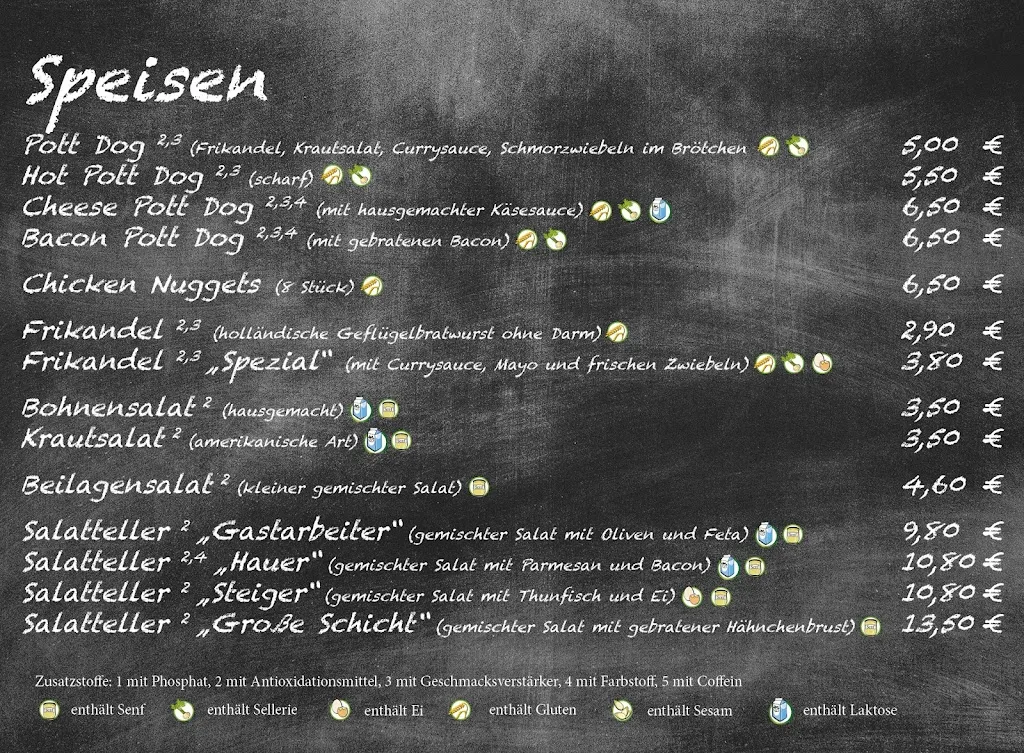 Speisen
Pott Dog 2,3 (Frikandel, Krautsalat, Currysauce, Schmorzwiebeln im Brötchen 5,00 €
Hot Pott Dog 2,3 (scharf) 5,50 €
Cheese Pott Dog 2,3,4 (mit hausgemachter Käsesauce) 6,50 €
Bacon Pott Dog 2,3,4 (mit gebratenen Bacon) 6,50 €
Chicken Nuggets (8 Stück) 6,50 €
Frikandel 2,3 (holländische Geflügelbratwurst ohne Darm) 2,90 €
Frikandel 2,3 „Spezial" (mit Currysauce, Mayo und frischen Zwiebeln) 3,80 €
Bohnensalat 2 (hausgemacht) 3,50 €
Krautsalat 2 (amerikanische Art) 3,50 €
Beilagensalat 2 (kleiner gemischter Salat) 4,60 €
Salatteller 2 „Gastarbeiter" (gemischter Salat mit Oliven und Feta) 9,80 €
Salatteller 2,4 „Hauer" (gemischter Salat mit Parmesan und Bacon) 10,80 €
Salatteller 2 „Steiger" (gemischter Salat mit Thunfisch und Ei) 10,80 €
Salatteller 2 „Große Schicht" (gemischter Salat mit gebratener Hähnchenbrust) 13,50 €
Zusatzstoffe: 1 mit Phosphat, 2 mit Antioxidationsmittel, 3 mit Geschmacksverstärker, 4 mit Farbstoff, 5 mit Coffein
enthält Senf enthält Sellerie enthält Ei enthält Gluten enthält Sesam enthält Laktose